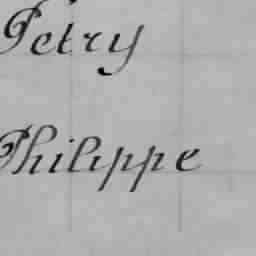 Petry
Philippe